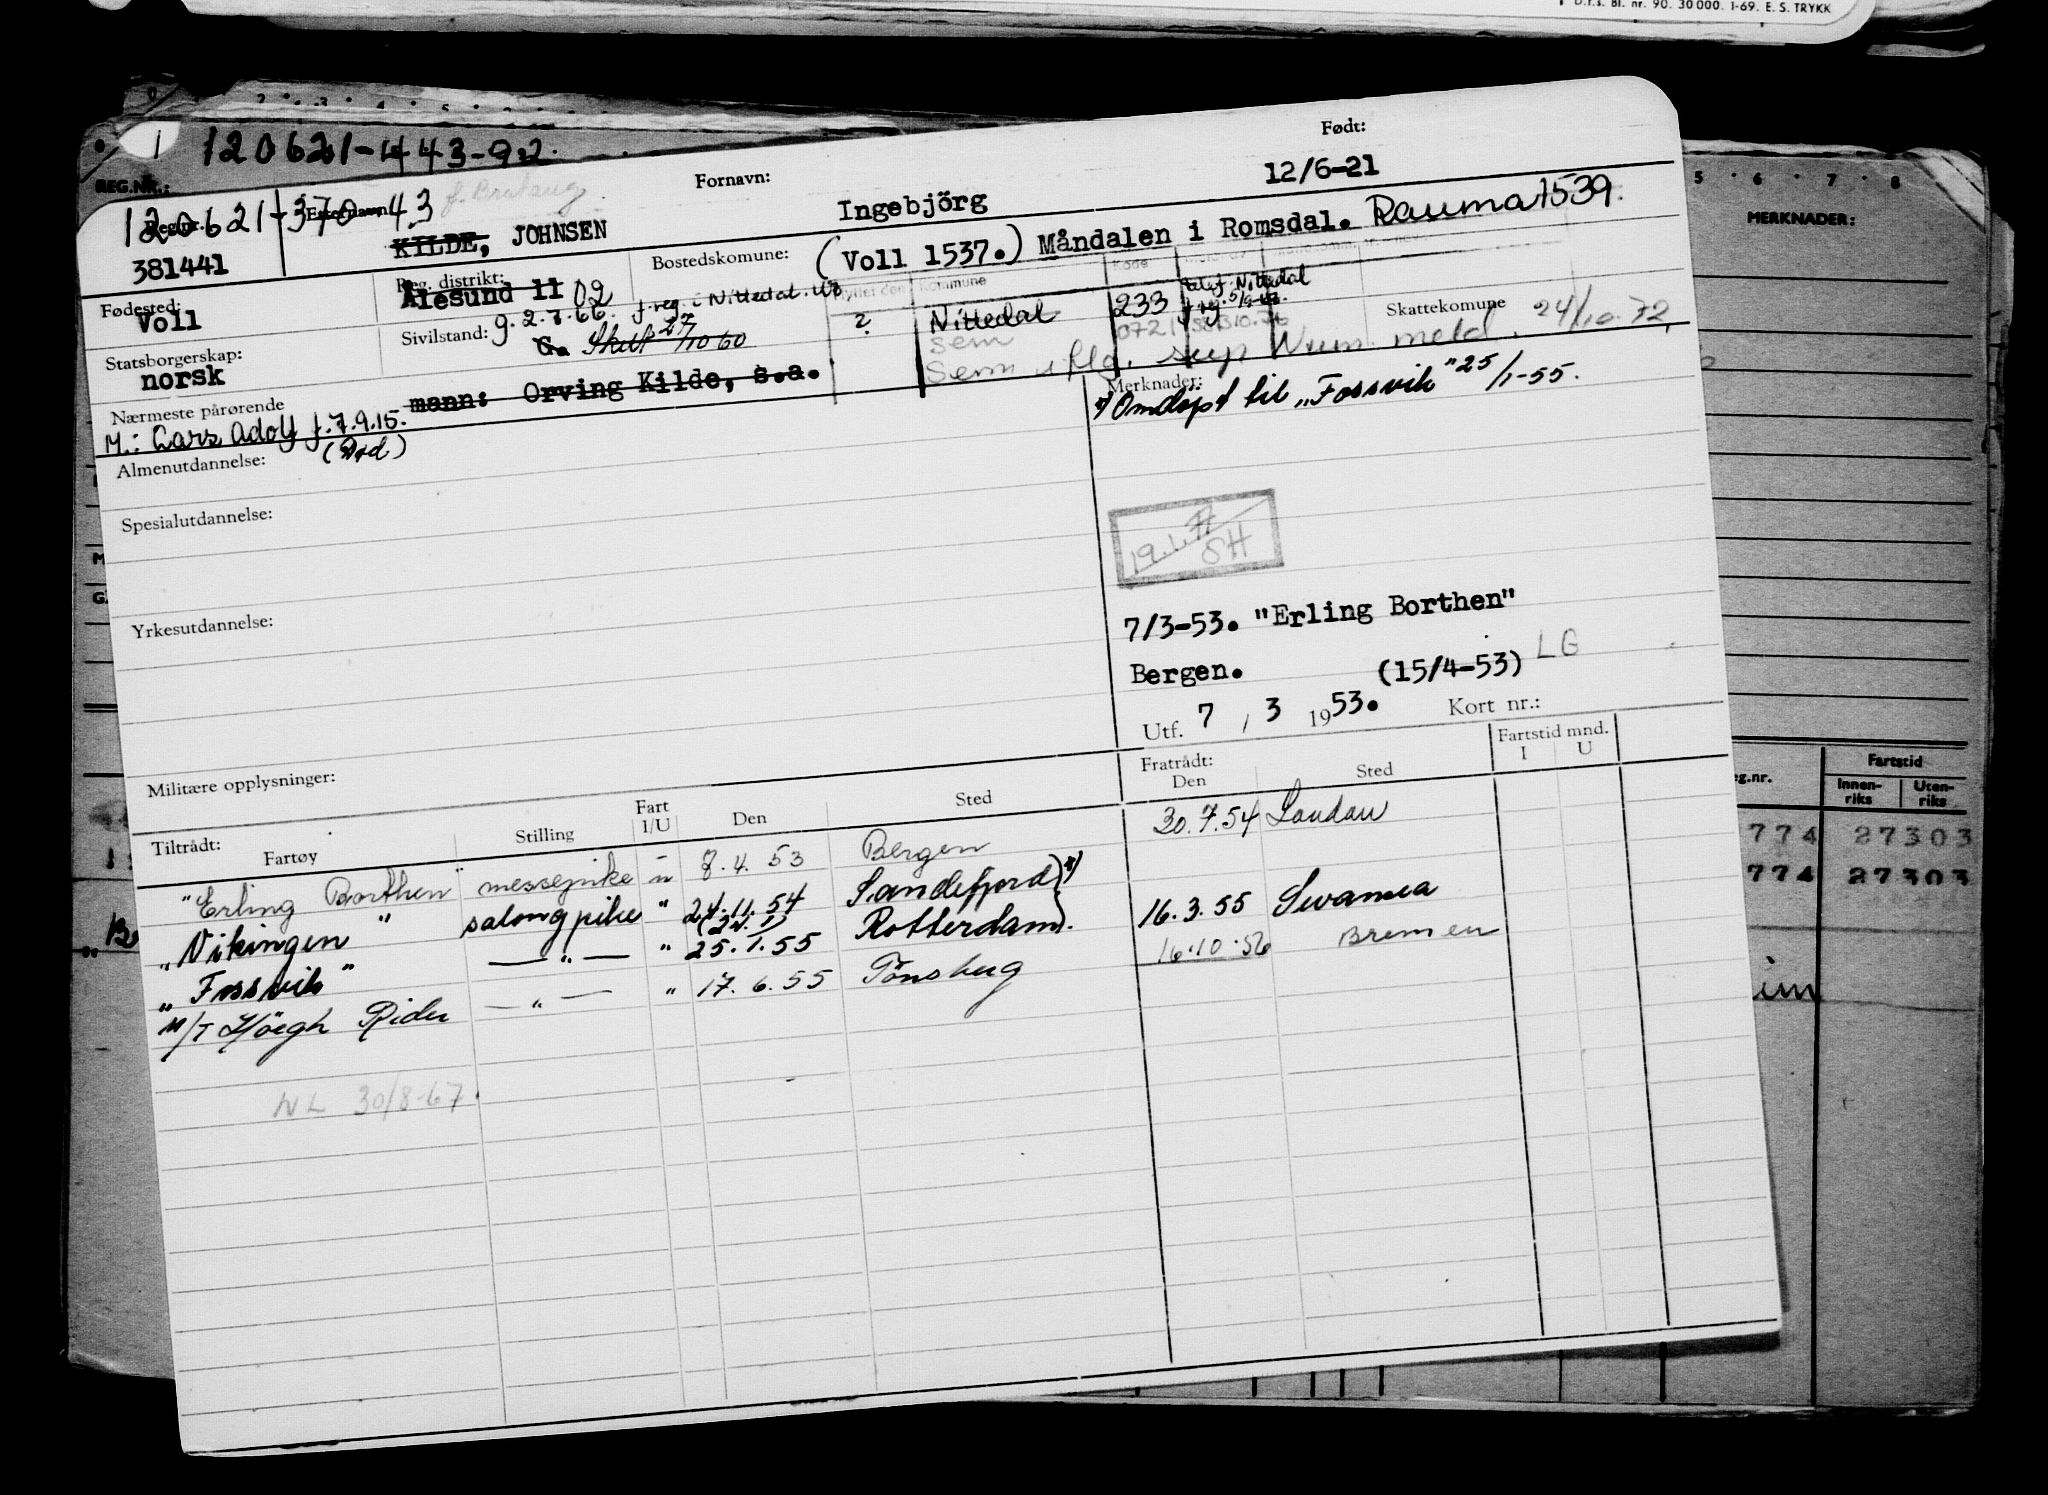 D.f.s. Bl. nr. 90. 30 000. 1-69. E. S. TRYKK
1 120621-443-92
REG.NR.:
MERKNADER:
Fornavn: Født:
120621-370 43
Reg.nr. Etternavn:
KILDE, JOHNSEN Ingebjörg 12/6-21
381441
Fødested: Reg. distrikt: Bostedskomune: (Voll 1537.) Måndalen i Romsdal. Rauma 1539.
Voll Ålesund 11 02
f. reg. i Nittedal
Flyttet den Kommune Kode
? Nittedal 233
Sem 0721
Skattekomune
Statsborgerskap: Sivilstand: g. 2.7.66.
norsk G. Skilt 27/10 60
Sem meld. 24/10.72
Nærmeste pårørende mann: Orving Kilde, s.a.
M.: Lars Adolf f. 7.9.15.
Merknader:
*) Omdöpt til "Fossvik" 25/1-55.
Almenutdannelse:
Spesialutdannelse:
19.1.
SH
Yrkesutdannelse:
7/3-53. "Erling Borthen"
Bergen. (15/4-53) LG
Utf. 7 / 3 1953. Kort nr.:
Militære opplysninger:
Tiltrådt: Fartøy Stilling Fart I/U Den Sted Fratrådt: Den Sted Fartstid mnd. I U
"Erling Borthen" messepike u 8.4.53 Bergen 30.7.54 Landau
"Vikingen" salongpike " 24.11.54 Sandefjord *)
"Fossvik" — " — " 25.1.55 Rotterdam. 16.3.55 Swansea
M/T Höegh Rider — " — " 17.6.55 Tönsberg 16.10.56 Bremen
NL 30/8-67.
eg.nr. Fartstid
Innen-riks Uten-riks
774 27303
774 27303